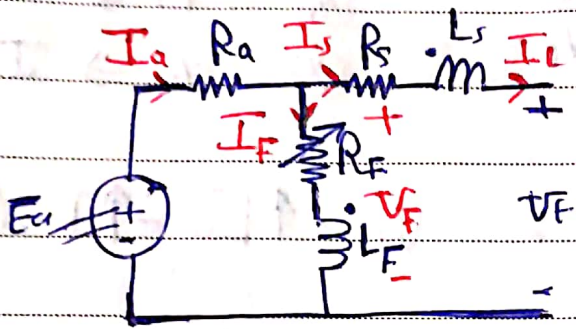 Ia Ra Is Rs Ls IL
+ +
IF RF
Ea + VF VF
LF
- - -